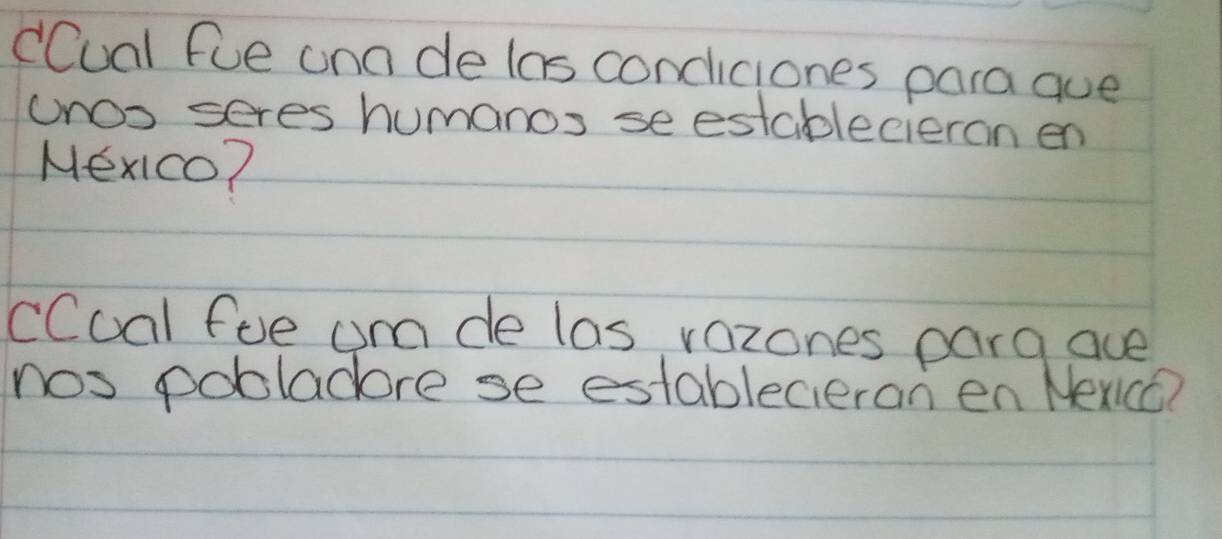 ¿Cual fue una de las condiciones para que
unos seres humanos se establecieran en
México?
¿Cual fue una de las razones para que
nos pobladore se establecieran en Mexico?